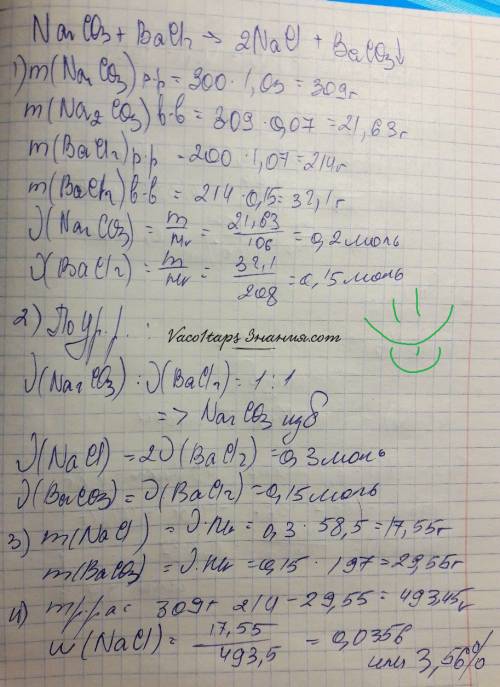 Na₂CO₃ + BaCl₂ → 2NaCl + BaCO₃↓
1) m(Na₂CO₃)р-р = 300·1,03 = 309г
m(Na₂CO₃)в-в = 309·0,07 = 21,63г
m(BaCl₂)р-р = 200·1,07 = 214г
m(BaCl₂)в-в = 214·0,15 = 32,1г
ν(Na₂CO₃) = m/Mr = 21,63/106 = 0,2моль
ν(BaCl₂) = m/Mr = 32,1/208 = 0,15моль
2) По ур. р.:
Vaco1tap3 Знания.com
ν(Na₂CO₃) : ν(BaCl₂) = 1 : 1
=> Na₂CO₃ изб
ν(NaCl) = 2ν(BaCl₂) = 0,3моль
ν(BaCO₃) = ν(BaCl₂) = 0,15моль
3) m(NaCl) = ν·Mr = 0,3·58,5 = 17,55г
m(BaCO₃) = ν·Mr = 0,15·197 = 29,55г
4) mр-ра = 309г 214 - 29,55 = 493,45г
w(NaCl) = 17,55/493,5 = 0,0356
или 3,56%